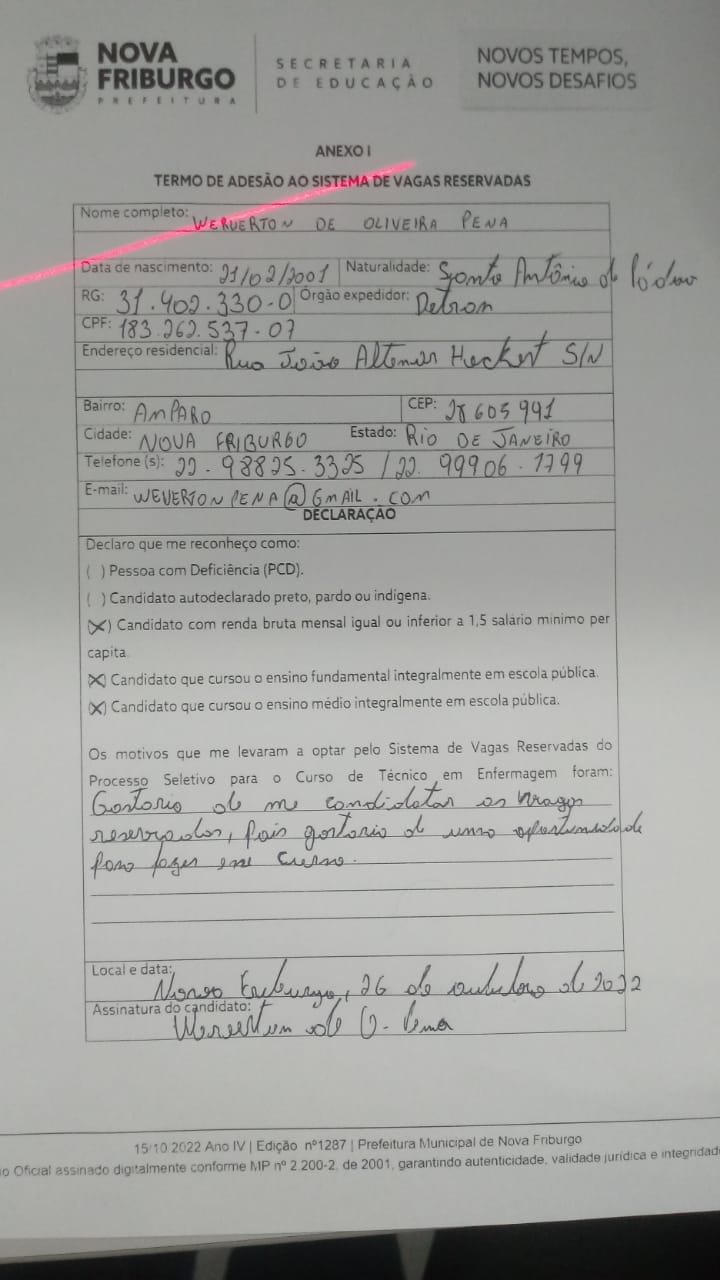 NOVA
FRIBURGO
PREFEITURA
SECRETARIA
DE EDUCAÇÃO
NOVOS TEMPOS,
NOVOS DESAFIOS
ANEXO I
TERMO DE ADESÃO AO SISTEMA DE VAGAS RESERVADAS
Nome completo: WERVERTON DE OLIVEIRA PENA
Data de nascimento: 21/02/2001 Naturalidade: Santo Antônio de Pádua
RG: 31.402.330-0 Órgão expedidor: Detran
CPF: 183.262.537-07
Endereço residencial: Rua João Altemar Heckert S/N
Bairro: AMPARO CEP: 28605941
Cidade: NOVA FRIBURGO Estado: RIO DE JANEIRO
Telefone (s): 22.98825.3325 / 22.99906.1799
E-mail: WEVERTONPENA@GMAIL.COM
DECLARAÇÃO
Declaro que me reconheço como:
( ) Pessoa com Deficiência (PCD).
( ) Candidato autodeclarado preto, pardo ou indígena.
(X) Candidato com renda bruta mensal igual ou inferior a 1,5 salário mínimo per
capita.
(X) Candidato que cursou o ensino fundamental integralmente em escola pública.
(X) Candidato que cursou o ensino médio integralmente em escola pública.
Os motivos que me levaram a optar pelo Sistema de Vagas Reservadas do
Processo Seletivo para o Curso de Técnico em Enfermagem foram:
Gostaria de me candidatar as vagas
reservadas, pois gostaria de uma oportunidade
para fazer esse curso.
Local e data: Nova Friburgo, 26 de outubro de 2022
Assinatura do candidato: Weverton de O. Pena
15/10/2022 Ano IV | Edição nº1287 | Prefeitura Municipal de Nova Friburgo
Oficial assinado digitalmente conforme MP nº 2.200-2, de 2001, garantindo autenticidade, validade jurídica e integridade